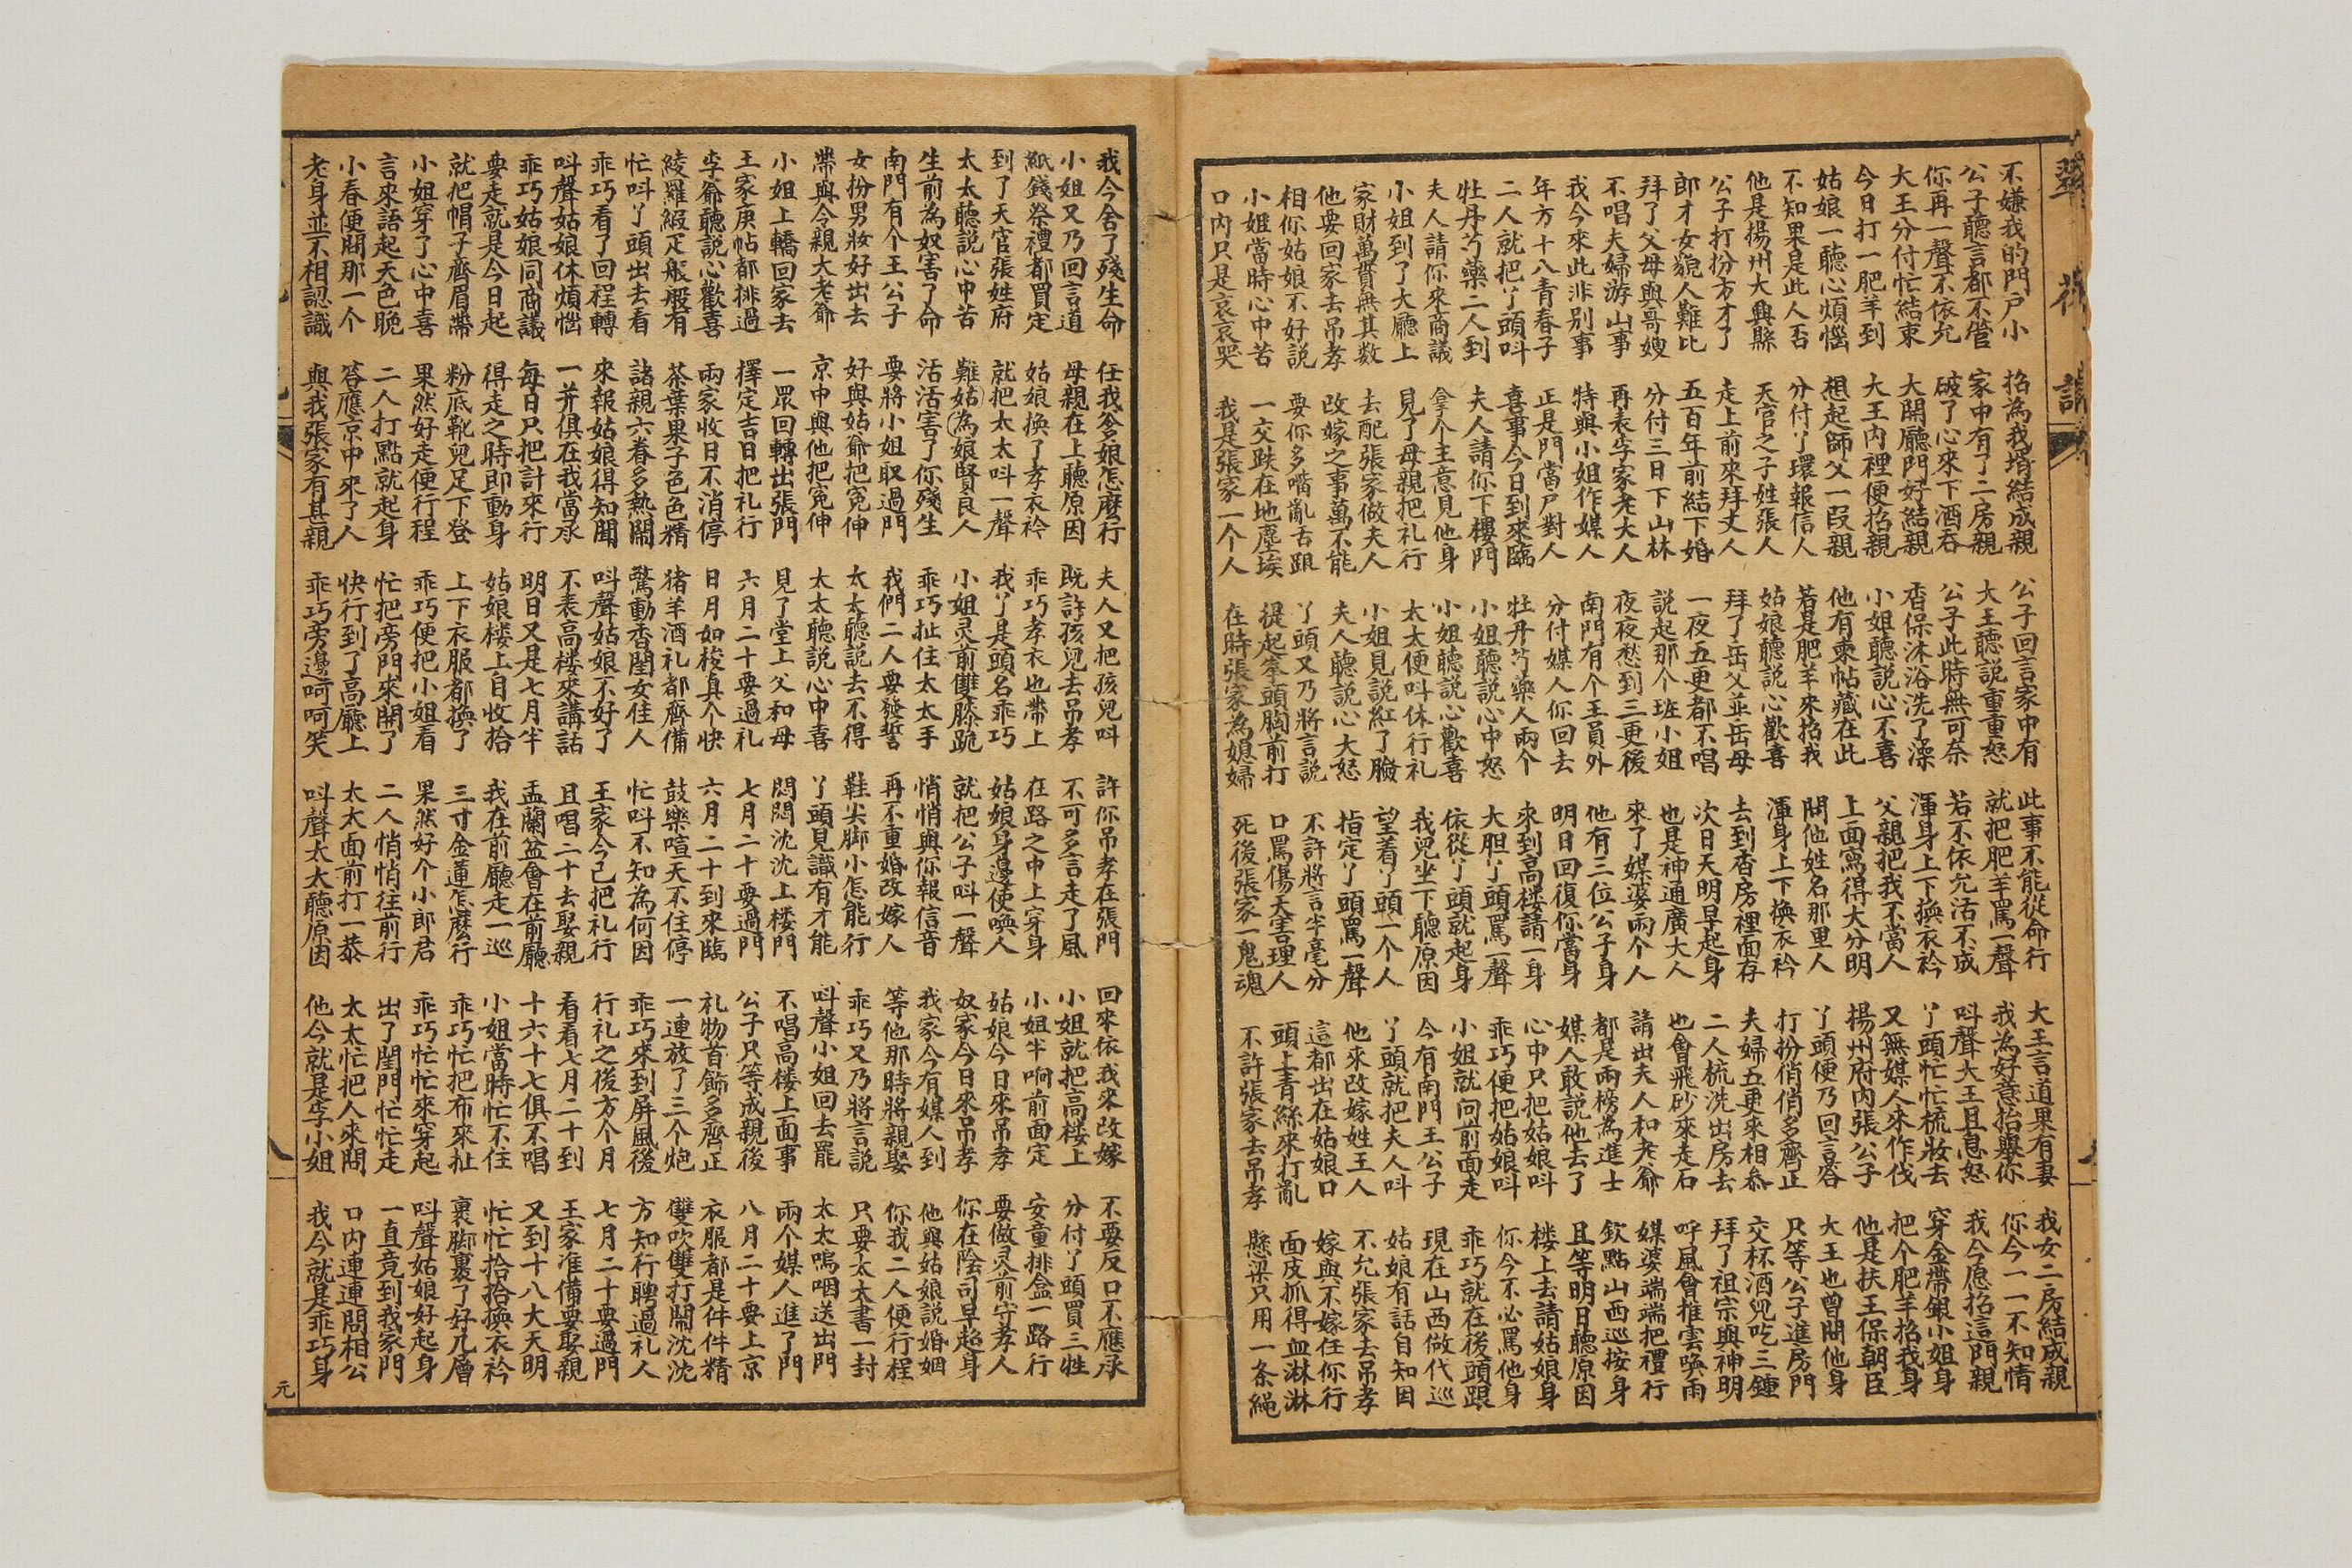 翠花
不嫌我的門戶小 招為我壻結成親 公子回言家中有 此事不能從命行 大王言道果有妻 我女二房結成親
公子聽言都不管 家中有了二房親 大王聽說重重怒 就把肥羊罵一聲 我為好意抬舉你 你今一一不知情
你再一聲不依允 破了心來下酒吞 公子此時無可奈 若不依允活不成 叫聲大王且息怒 我今愿招這門親
大王分付忙結束 大開廳門好結親 香保沐浴洗了澡 渾身上下換衣衿 丫頭忙忙梳妝去 穿金帶銀小姐身
今日打一肥羊到 大王內裡便招親 小姐聽說心不喜 父親把我不當人 又無媒人來作伐 把个肥羊招我身
姑娘一聽心煩惱 想起師父一叚親 他有柬帖藏在此 上面寫得大分明 揚州府內張公子 他是扶王保朝臣
不知果是此人否 分付丫環報信人 若是肥羊來招我 問他姓名那里人 丫頭便乃回言答 大王也曾問他身
他是揚州大興縣 天官之子姓張人 姑娘聽說心歡喜 渾身上下換衣衿 打扮俏俏多齊正 只等公子進房門
公子打扮方才了 走上前來拜丈人 拜了岳父並岳母 去到香房裡面存 夫婦五更來相叅 交杯酒兒吃三鍾
郎才女貌人難比 五百年前結下婚 一夜五更都不唱 次日天明早起身 二人梳洗出房去 拜了祖宗與神明
拜了父母與哥嫂 分付三日下山林 說起那个班小姐 也是神通廣大人 也會飛砂來走石 呼風會推雲喚雨
不唱夫婦游山事 再表李家老大人 夜夜愁到三更後 來了媒婆兩个人 請出夫人和老爺 媒婆端端把禮行
我今來此非別事 特與小姐作媒人 南門有个王員外 他有三位公子身 都是兩榜為進士 欽點山西巡按身
年方十八青春子 正是門當戶對人 分付媒人你回去 明日回復你當身 媒人敢說他去了 且等明日聽原因
二人就把丫頭叫 喜事今日到來臨 牡丹芍藥人兩个 來到高楼請一身 心中只把姑娘叫 楼上去請姑娘身
牡丹芍藥二人到 夫人請你下樓門 小姐聽說心中怒 大胆丫頭罵一聲 乖巧便把姑娘叫 你今不必罵他身
夫人請你來商議 拿个主意見他身 小姐聽說心歡喜 依從丫頭就起身 小姐就向前面走 乖巧就在後頭跟
小姐到了大廳上 見了母親把礼行 太太便叫休行礼 我兒坐下聽原因 今有南門王公子 現在山西做代巡
家財萬貫無其數 去配張家做夫人 小姐見說紅了臉 望着丫頭一个人 丫頭就把夫人叫 姑娘有話自知因
他要回家去吊孝 改嫁之事萬不能 夫人聽說心大怒 指定丫頭罵一聲 他來改嫁姓王人 不允張家去吊孝
相你姑娘不好說 要你多嘴亂舌跟 丫頭又乃將言說 不許將言半毫分 這都出在姑娘口 嫁與不嫁任你行
小姐當時心中苦 一交跌在地塵埃 提起拳頭胸前打 口罵傷天害理人 頭上青絲來打亂 面皮抓得血淋淋
口內只是哀哀哭 我是張家一个人 在時張家為媳婦 死後張家一鬼魂 不許張家去吊孝 懸梁只用一条繩
我今舍了殘生命 任我爹娘怎麽行 夫人又把孩兒叫 許你吊孝在張門 回來依我來改嫁 不要反口不應承
小姐又乃回言道 母親在上聽原因 既許孩兒去吊孝 不可多言走了風 小姐就把高楼上 分付丫頭買三牲
紙錢祭禮都買定 姑娘換了孝衣衿 乖巧孝衣也帶上 在路之中上穿身 小姐半晌前面定 安童排盒一路行
到了天官張姓府 就把太太叫一聲 我丫是頭名乖巧 姑娘身邊使喚人 姑娘今日來吊孝 要做灵前守孝人
太太聽說心中苦 難姑為娘賢良人 小姐灵前雙膝跪 就把公子叫一聲 奴家今日來吊孝 你在陰司早起身
生前為奴害了命 活活害了你殘生 乖巧扯住太太手 悄悄與你報信音 我家今有媒人到 他與姑娘說婚姻
南門有个王公子 要將小姐取過門 我們二人要發誓 再不重婚改嫁人 等他那時將親娶 你我二人便行程
女扮男妝好出去 好與姑爺把冤伸 太太聽說去不得 鞋尖脚小怎能行 乖巧又乃將言說 只要太太書一封
帶與令親大老爺 京中與他把冤伸 太太聽說心中喜 丫頭見識有才能 叫聲小姐回去罷 太太嗚咽送出門
小姐上轎回家去 一眾回轉出張門 見了堂上父和母 悶悶沈沈上楼門 不唱高楼上面事 兩个媒人進了門
王家庚帖都排過 擇定吉日把礼行 六月二十要過礼 七月二十要過門 公子只等成親後 八月二十要上京
李爺聽說心歡喜 兩家收日不消停 日月如梭真个快 六月二十到來臨 礼物首飾多齊正 衣服都是件件精
綾羅緞疋般般有 茶葉果子色色精 猪羊酒礼都齊備 鼓樂喧天不住停 一連放了三个炮 雙吹雙打鬧沈沈
忙叫丫頭出去看 諸親六眷多熱鬧 驚動香閨女佳人 忙叫不知為何因 乖巧來到屏風後 方知行聘過礼人
乖巧看了回程轉 來報姑娘得知聞 叫聲姑娘不好了 王家今已把礼行 行礼之後方个月 七月二十要過門
叫聲姑娘休煩惱 一并俱在我當承 不表高楼來講話 且唱二十去娶親 看看七月二十到 王家准備要娶親
乖巧姑娘同商議 每日只把計來行 明日又是七月半 盂蘭盆會在前廳 十六十七俱不唱 又到十八大天明
要走就是今日起 得走之時即動身 姑娘楼上自收拾 我在前廳走一巡 小姐當時忙不住 忙忙拾拾換衣衿
就把帽子齊眉帶 粉底靴兒足下登 上下衣服都換了 三寸金蓮怎麽行 乖巧忙把布來扯 裹脚裹了好几層
小姐穿了心中喜 果然好走便行程 乖巧便把小姐看 果然好个小郎君 乖巧忙忙來穿起 叫聲姑娘好起身
言來語起天色晚 二人打點就起身 忙把旁門來開了 二人悄悄往前行 出了閨門忙忙走 一直竟到我家門
小春便開那一个 答應京中來了人 快行到了高廳上 太太面前打一恭 太太忙把人來問 口內連連問相公
老身並不相認識 與我張家有甚親 乖巧旁邊呵呵笑 叫聲太太聽原因 他今就是李小姐 我今就是乖巧身
八
元